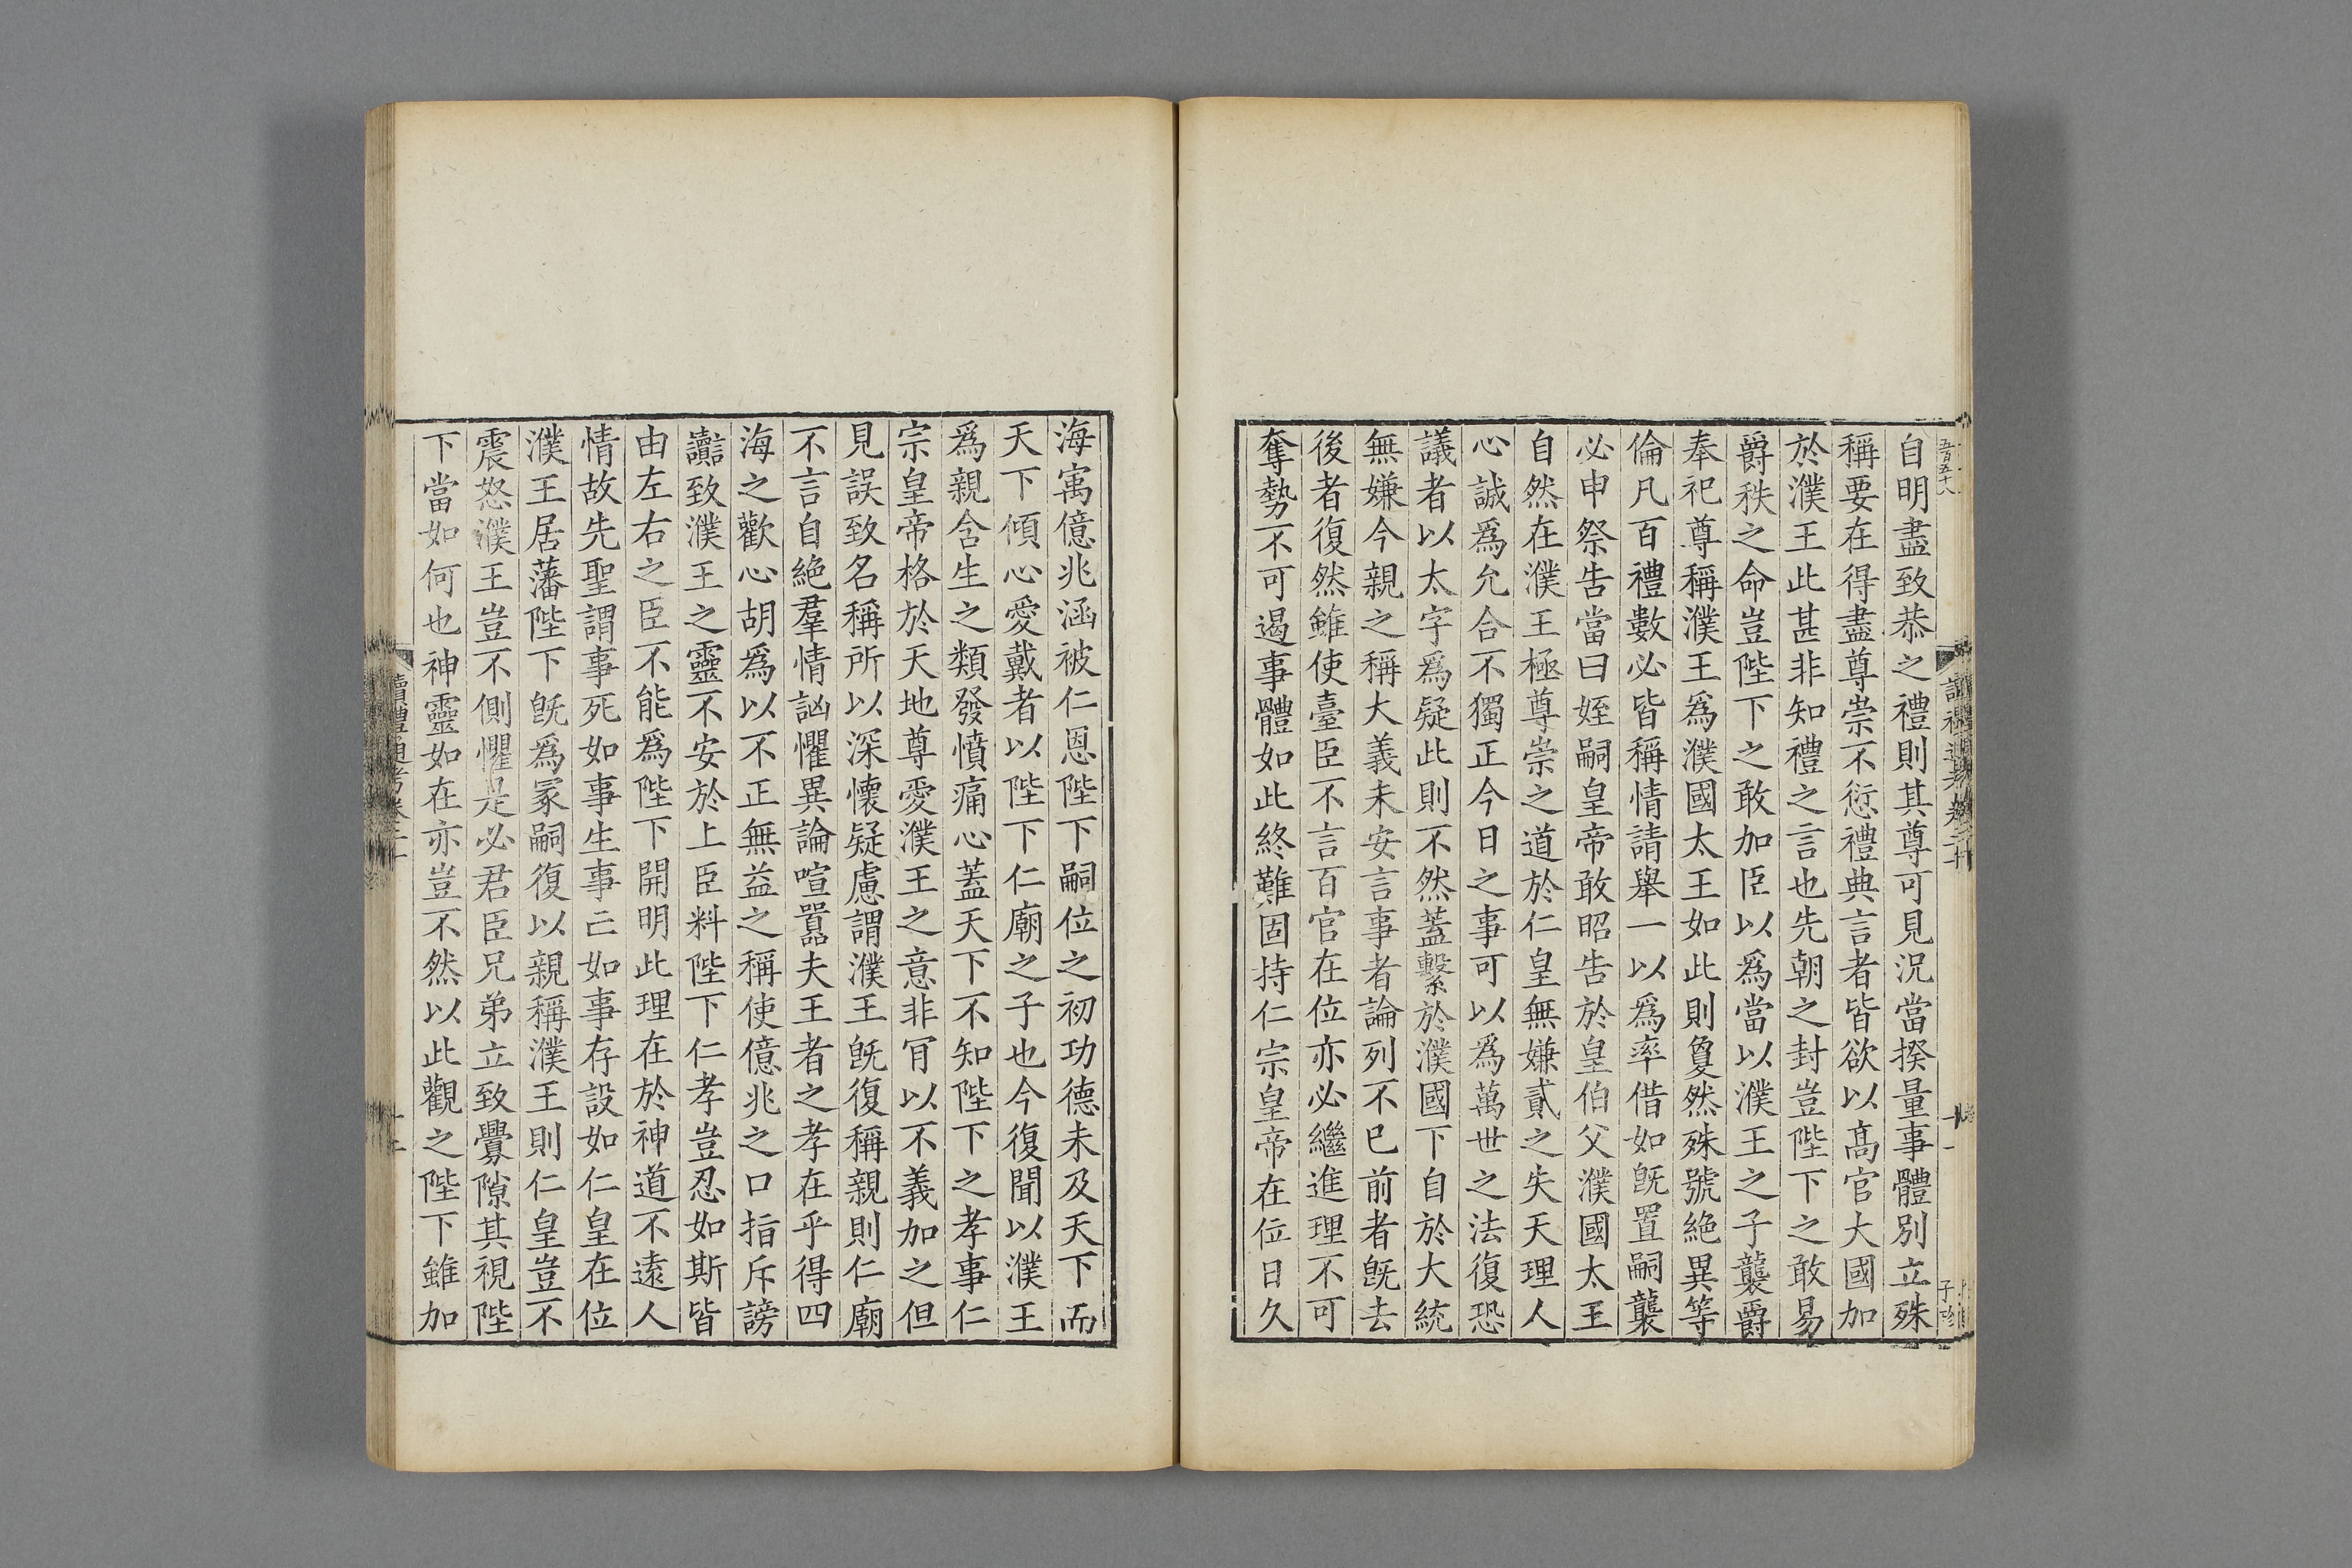 自明盡致恭之禮則其尊可見況當揆量事體別立殊
稱要在得盡尊崇不愆禮典言者皆欲以高官大國加
於濮王此甚非知禮之言也先朝之封豈陛下之敢易
爵秩之命豈陛下之敢加臣以爲當以濮王之子襲爵
奉祀尊稱濮王爲濮國太王如此則敻然殊號絕異等
倫凡百禮數必皆稱情請舉一以爲率借如旣置嗣襲
必申祭告當曰姪嗣皇帝敢昭告於皇伯父濮國太王
自然在濮王極尊崇之道於仁皇無嫌貳之失天理人
心誠爲允合不獨正今日之事可以爲萬世之法復恐
議者以太字爲疑此則不然蓋繫於濮國下自於大統
無嫌今親之稱大義未安言事者論列不已前者旣去
後者復然雖使臺臣不言百官在位亦必繼進理不可
奪勢不可遏事體如此終難固持仁宗皇帝在位日久
海寓億兆涵被仁恩陛下嗣位之初功德未及天下而
天下傾心愛戴者以陛下仁廟之子也今復聞以濮王
爲親含生之類發憤痛心蓋天下不知陛下之孝事仁
宗皇帝格於天地尊愛濮王之意非肎以不義加之但
見誤致名稱所以深懷疑慮謂濮王旣復稱親則仁廟
不言自絕羣情訩懼異論喧囂夫王者之孝在乎得四
海之歡心胡爲以不正無益之稱使億兆之口指斥謗
讟致濮王之靈不安於上臣料陛下仁孝豈忍如斯皆
由左右之臣不能爲陛下開明此理在於神道不遠人
情故先聖謂事死如事生事亡如事存設如仁皇在位
濮王居藩陛下旣爲冢嗣復以親稱濮王則仁皇豈不
震怒濮王豈不側懼是必君臣兄弟立致釁隙其視陛
下當如何也神靈如在亦豈不然以此觀之陛下雖加
讀禮通考卷二十